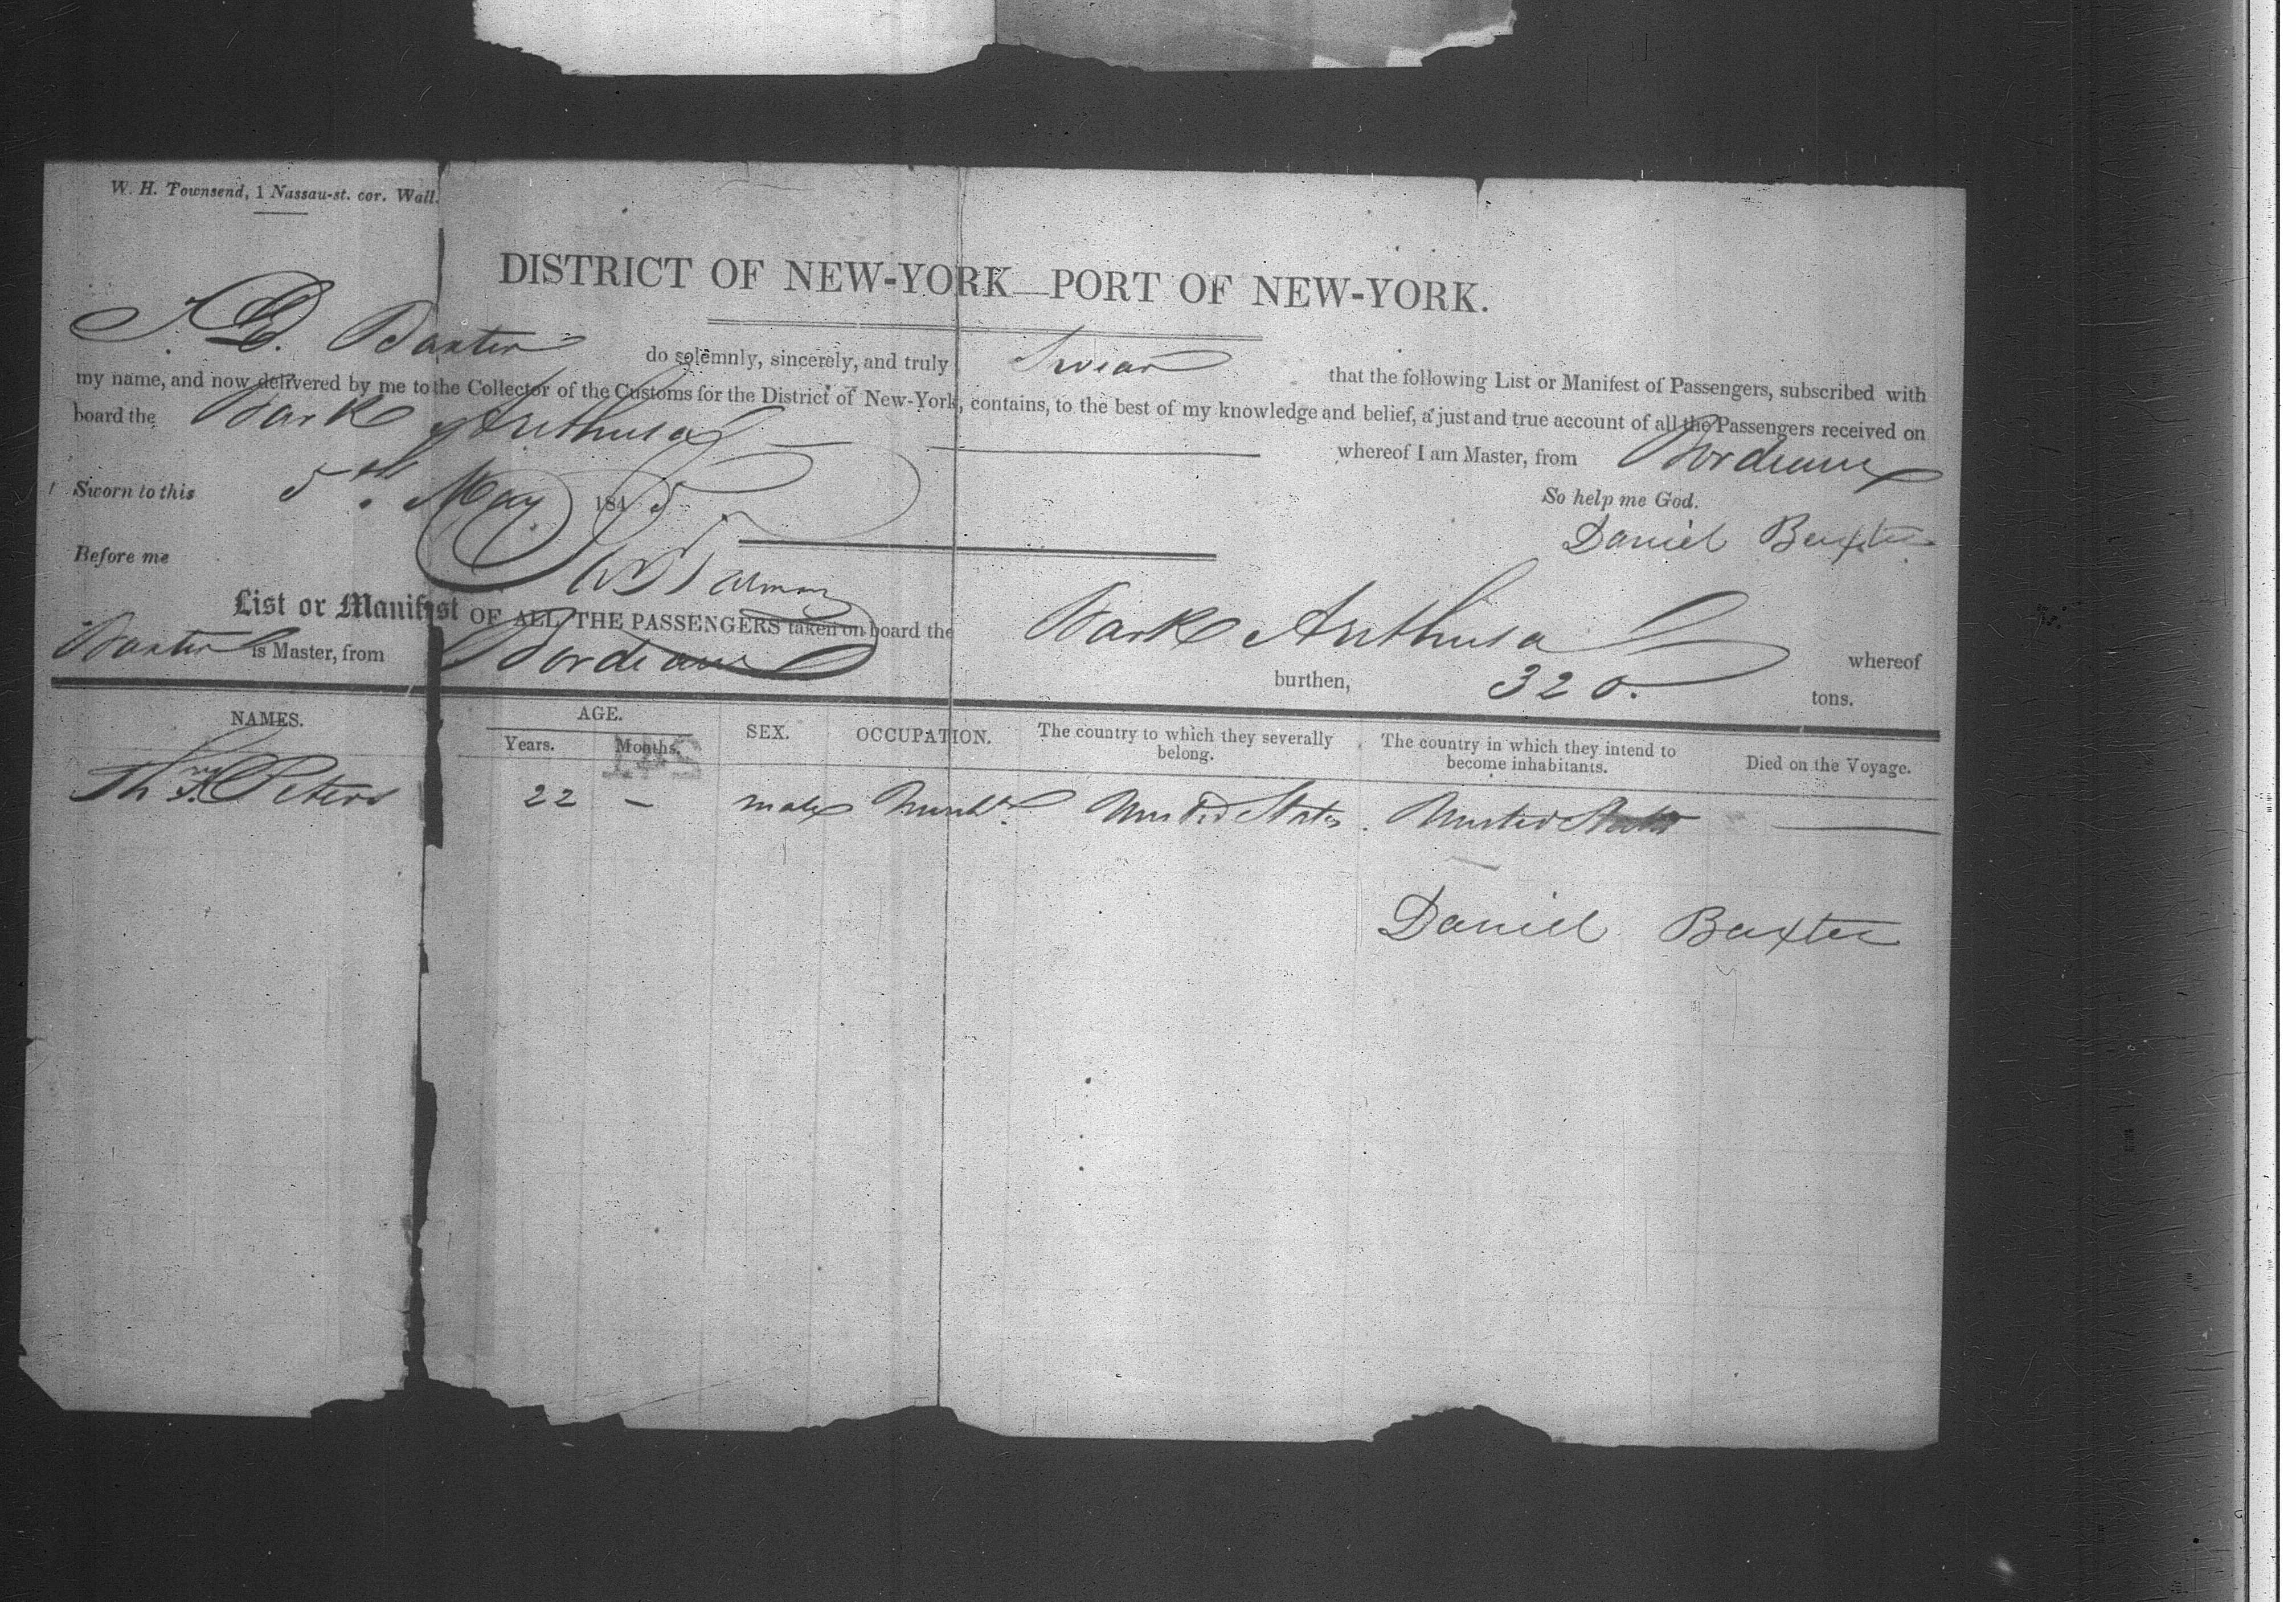 W. H. Townsend, 1 Nassau-st. cor. Wall.
DISTRICT OF NEW-YORK—PORT OF NEW-YORK.
I, D. Baxter do solemnly, sincerely, and truly Swear that the following List or Manifest of Passengers, subscribed with
my name, and now delivered by me to the Collector of the Customs for the District of New-York, contains, to the best of my knowledge and belief, a just and true account of all the Passengers received on
board the Bark Arethusa whereof I am Master, from Bordeaux
Sworn to this 5th. May 1845 So help me God.
Daniel Baxter
Before me
List or Manifest OF ALL THE PASSENGERS taken on board the Bark Arethusa whereof
Baxter is Master, from Bordeaux burthen, 320. tons.
NAMES. AGE. SEX. OCCUPATION. The country to which they severally belong. The country in which they intend to become inhabitants. Died on the Voyage.
Years. Months.
Peters 22 – male Mercht. United States. United States —
Daniel Baxter